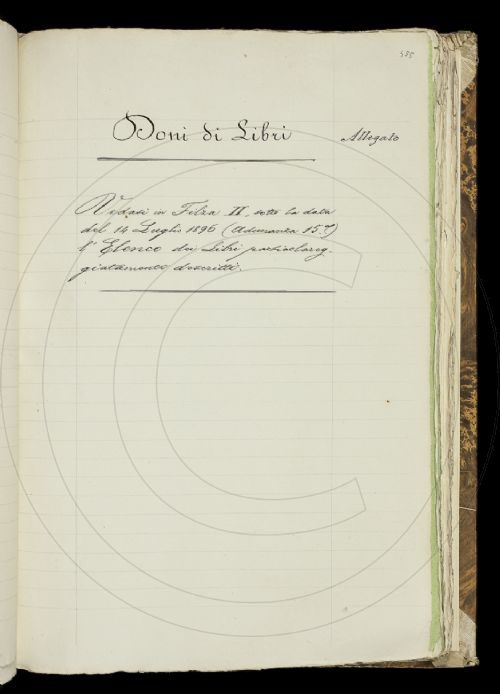 485
Doni di Libri
Allegato
Vedasi in Filza II, sotto la data
del 14 Luglio 1896 (Adunanza 15.ª)
l'Elenco dei Libri particolareg-
giatamente descritti.